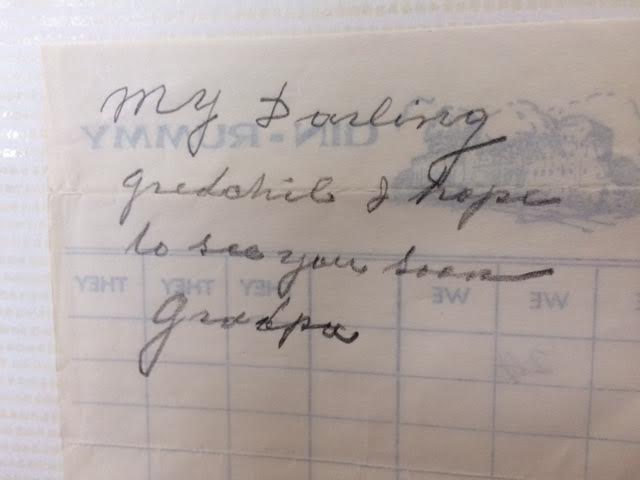 My Darling
gredchile I hope
to see you soon
Gradpa
GIN-RUMMY
THEY THEY THEY WE WE
24